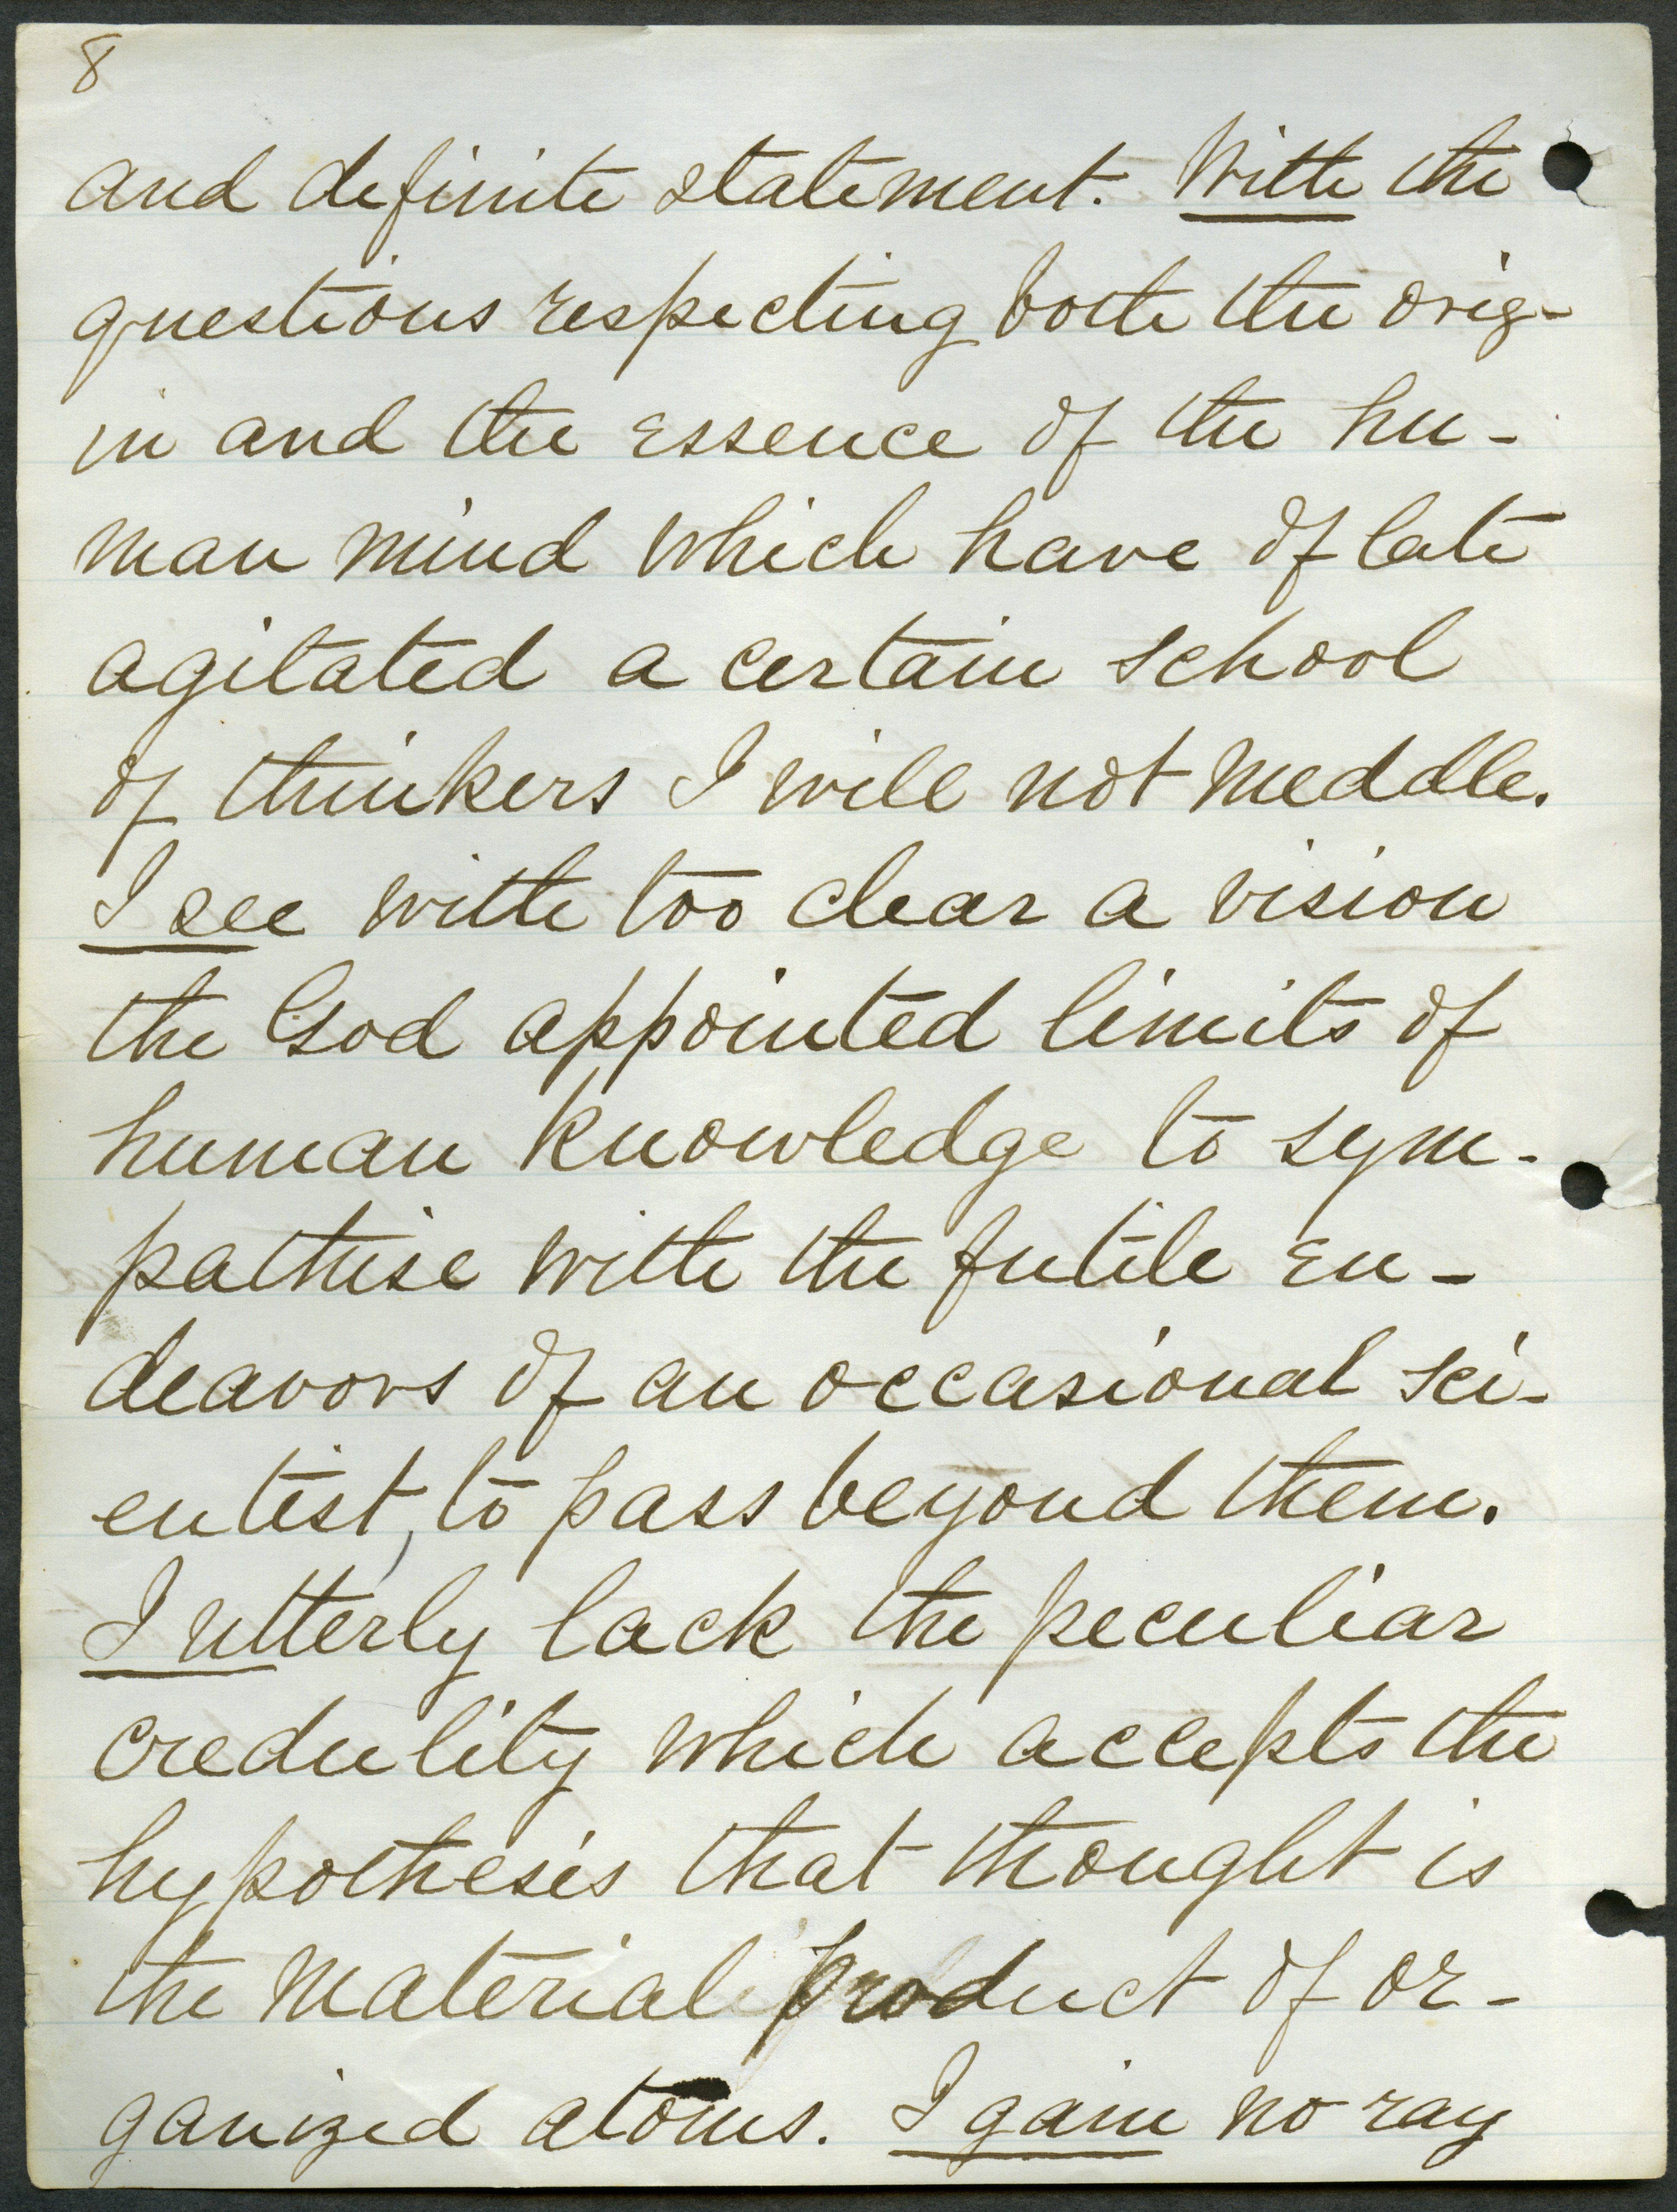 8
and definite statement. With the
questions respecting both the orig-
in and the essence of the hu-
man mind which have of late
agitated a certain school
of thinkers I will not meddle.
I see with too clear a vision
the God appointed limits of
human knowledge to sym-
pathise with the futile en-
deavors of an occasional sci-
entist, to pass beyond them.
I utterly lack the peculiar
credulity which accepts the
hypothesis that thought is
the material product of or-
ganized atoms. I gain no ray